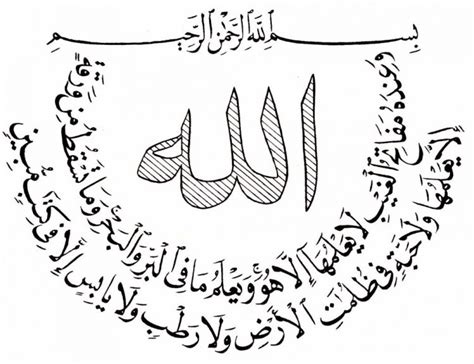 بِسْمِ ٱللَّهِ ٱلرَّحْمَٰنِ ٱلرَّحِيمِ
الله
وَعِندَهُ مَفَاتِحُ ٱلْغَيْبِ لَا يَعْلَمُهَا إِلَّا هُوَ وَيَعْلَمُ مَا فِى ٱلْبَرِّ وَٱلْبَحْرِ وَمَا تَسْقُطُ مِن وَرَقَةٍ
إِلَّا يَعْلَمُهَا وَلَا حَبَّةٍ فِى ظُلُمَٰتِ ٱلْأَرْضِ وَلَا رَطْبٍ وَلَا يَابِسٍ إِلَّا فِى كِتَٰبٍ مُّبِينٍ